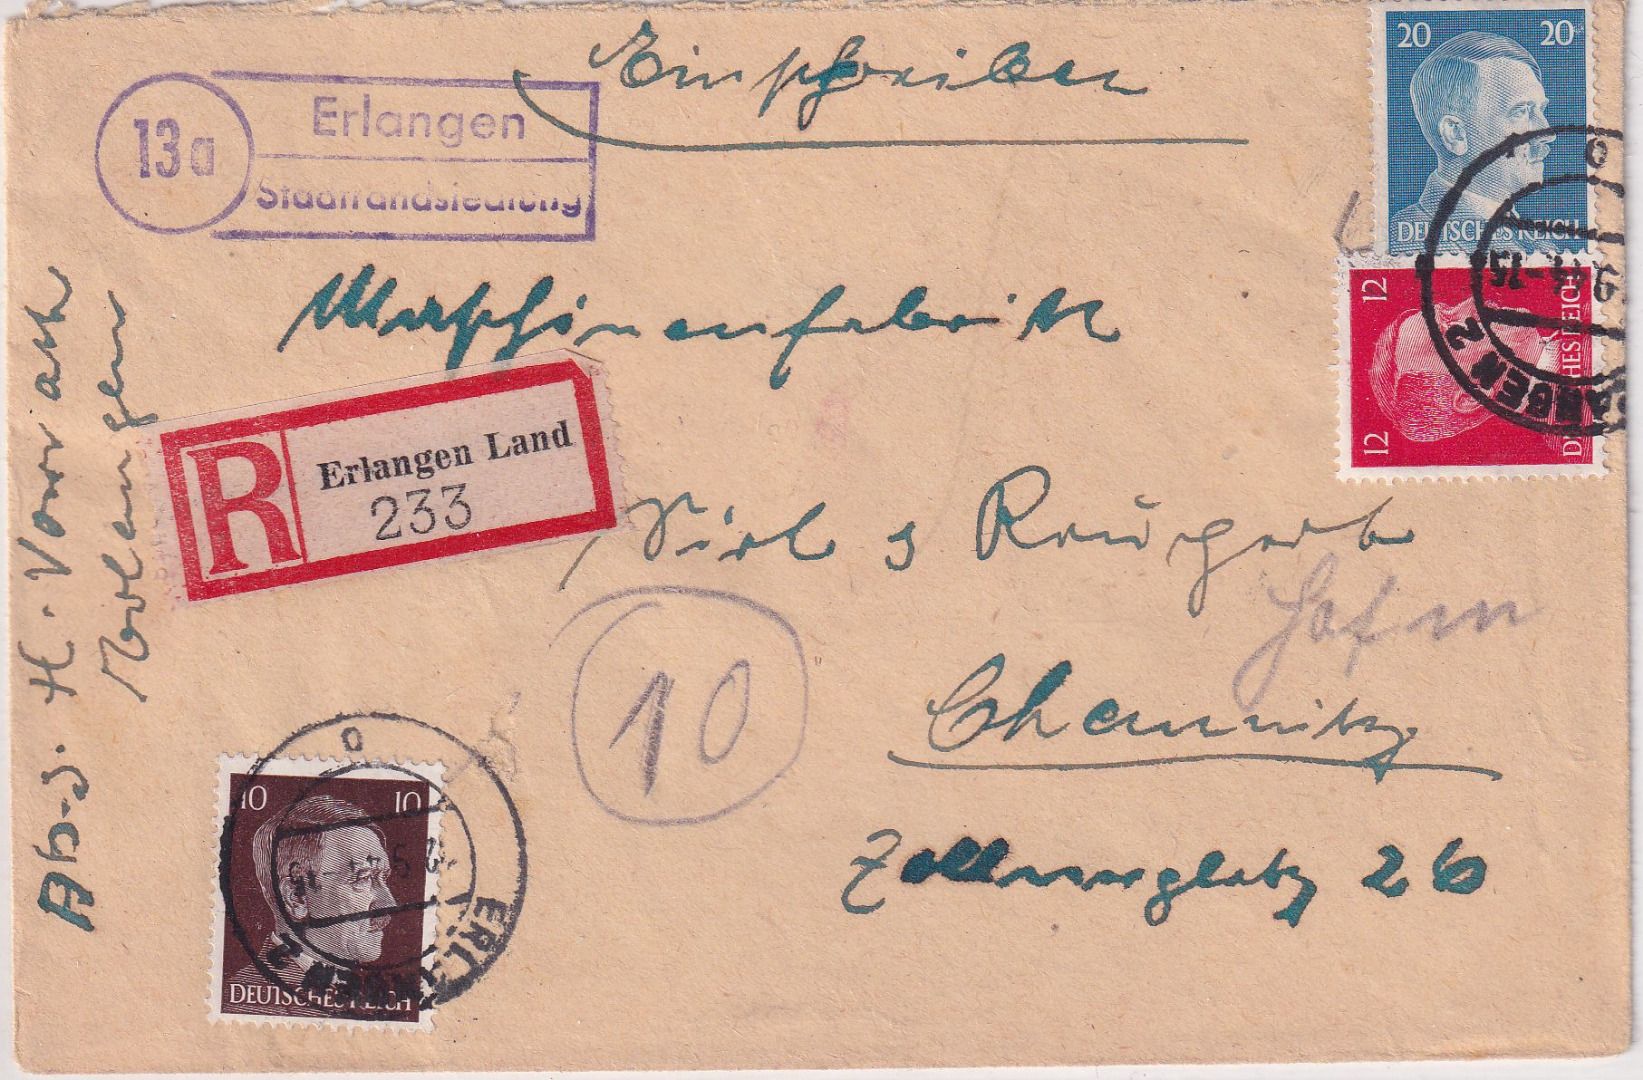 Einschreiben
13a
Erlangen
Stadtrandsiedlung
20 20
DEUTSCHES REICH
12 12
DEUTSCHES REICH
ERLANGEN 2
Maschinenfabrik
R
Erlangen Land
233
&
Chemnitz
10
26
Abs. H.
Erlangen
10 10
DEUTSCHES REICH
ERLANGEN 2